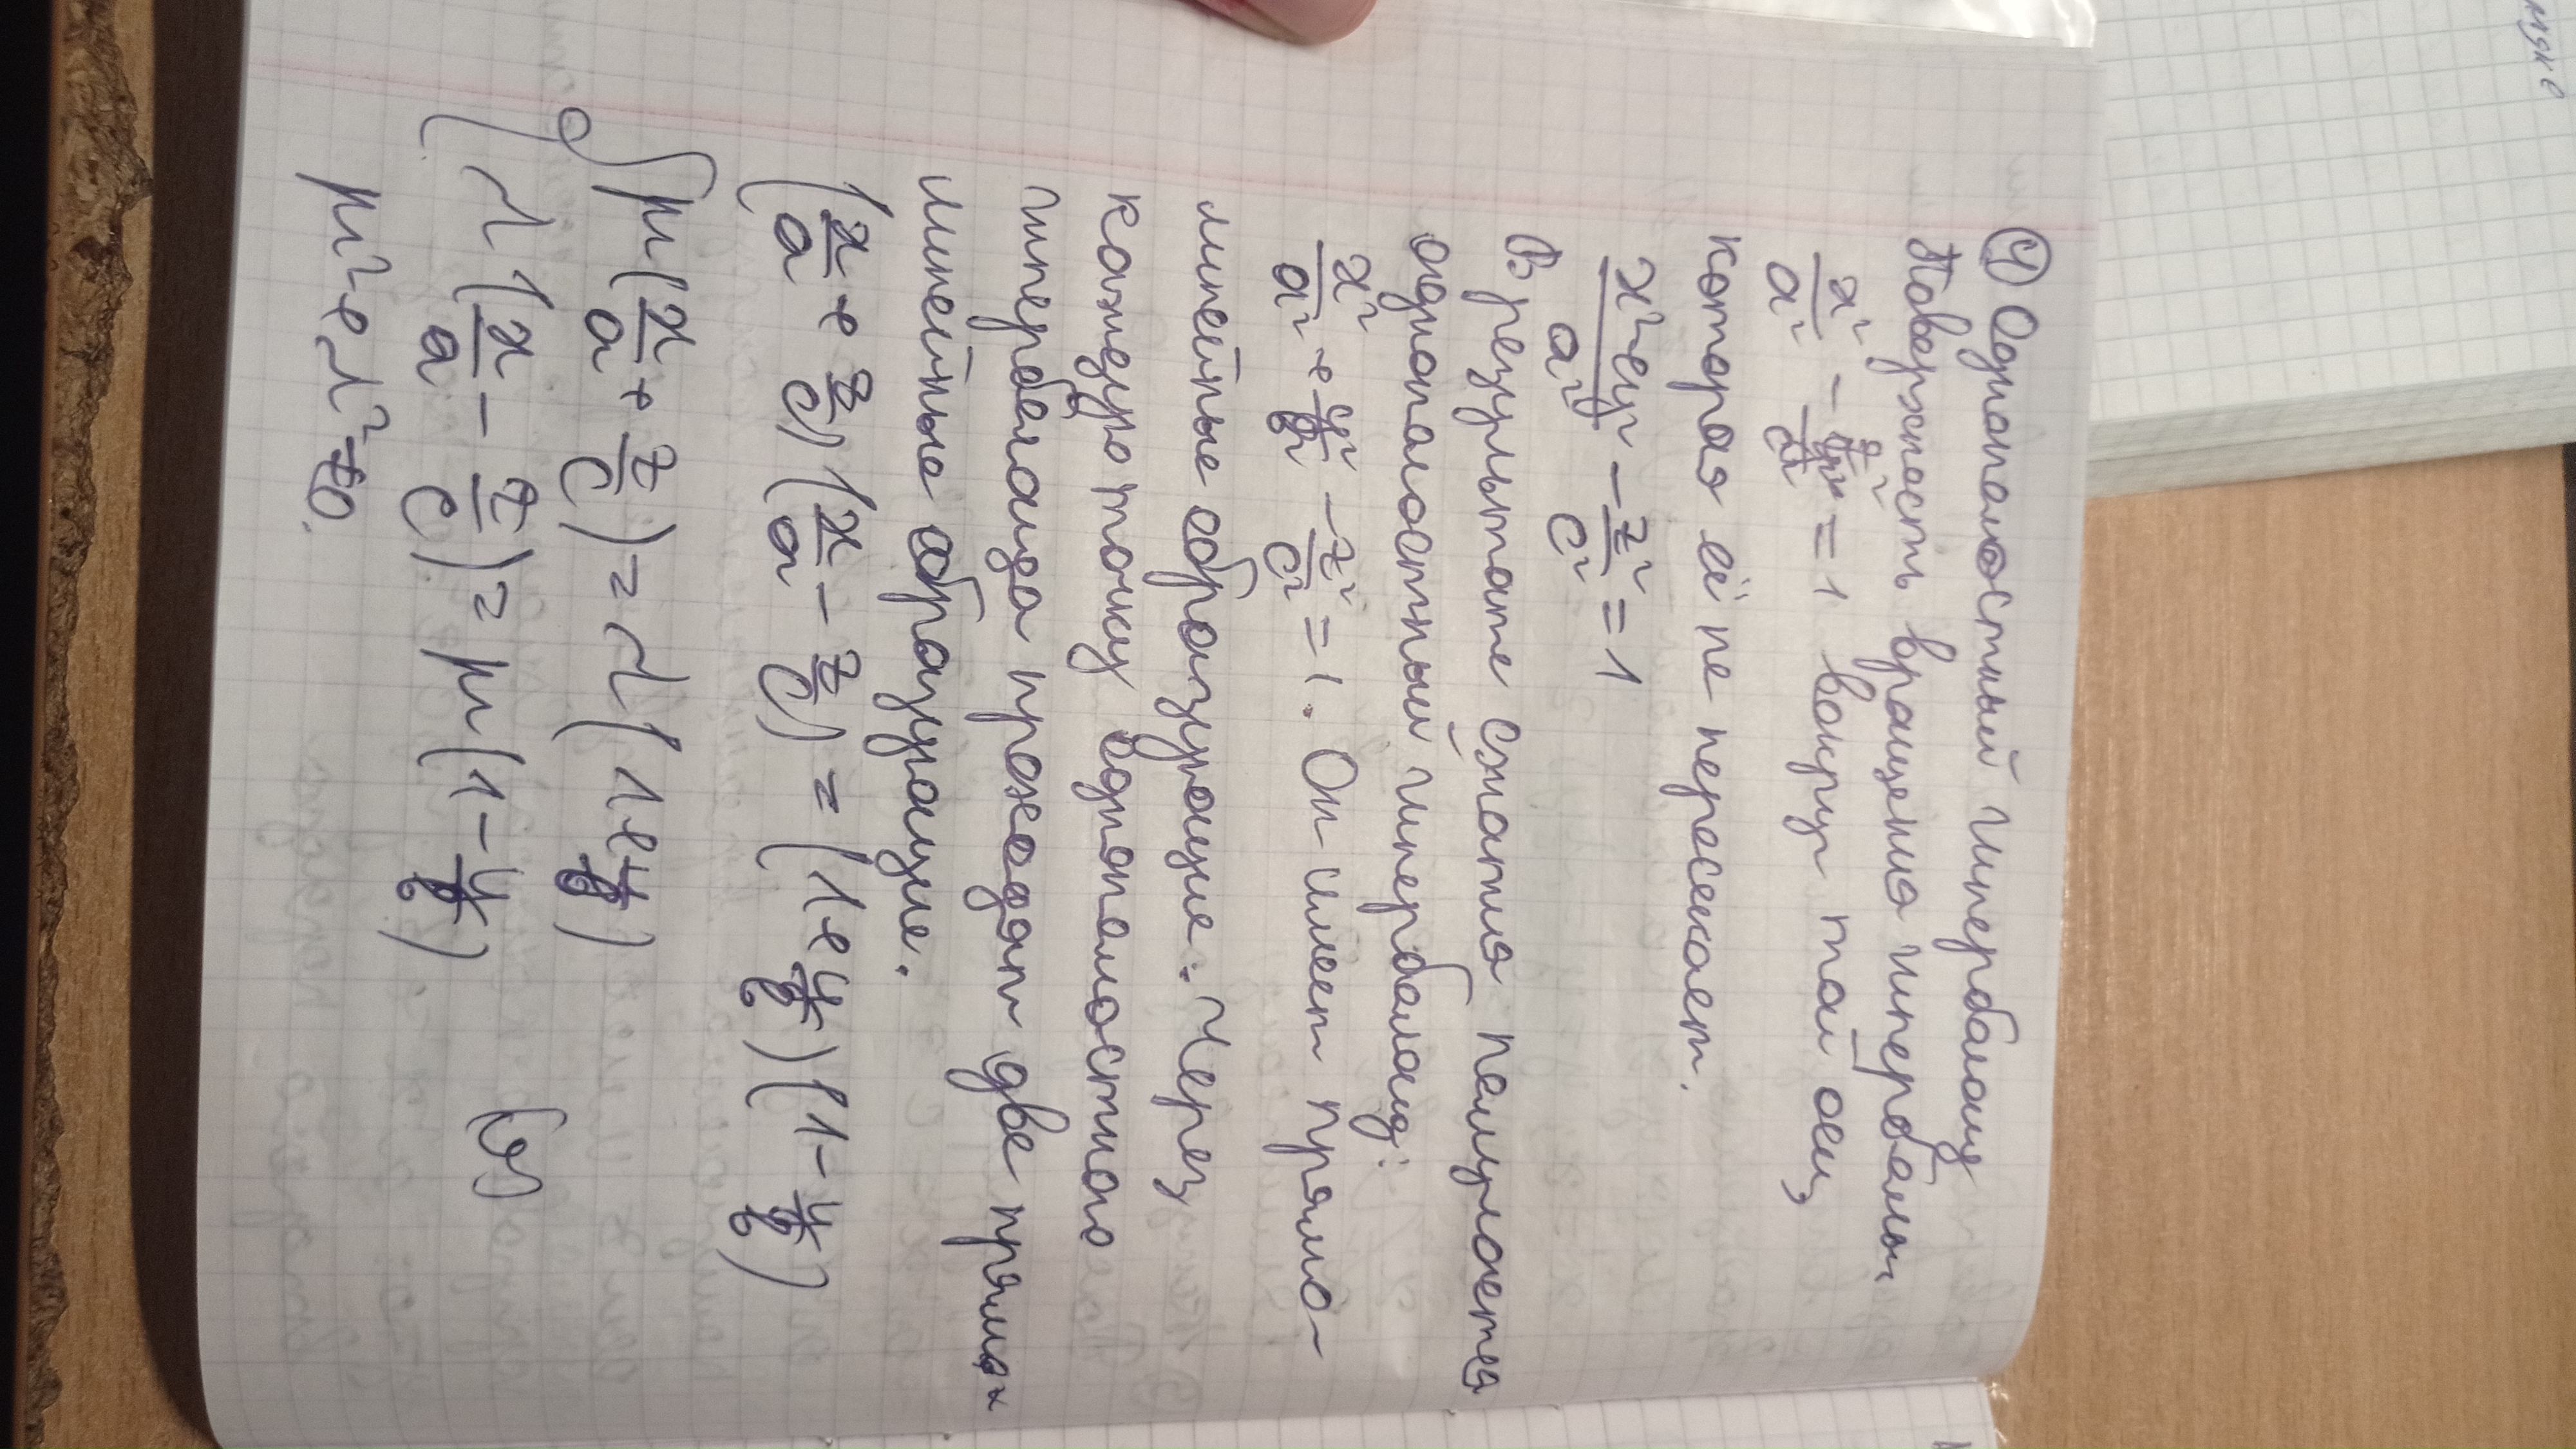 ④ Однополостный гиперболоид
Поверхность вращения гиперболы
x²/a² - z²/c² = 1 вокруг той оси,
которая её не пересекает.
(x²+y²)/a² - z²/c² = 1
В результате сжатия получается
однополостный гиперболоид:
x²/a² + y²/b² - z²/c² = 1. Он имеет прямо-
линейные образующие. Через
каждую точку однополостного
гиперболоида проходят две прямо-
линейные образующие.
(x/a + z/c)(x/a - z/c) = (1+y/b)(1-y/b)
{ μ(x/a + z/c) = λ(1+y/b)
λ(x/a - z/c) = μ(1 - y/b)
μ²+λ²≠0.